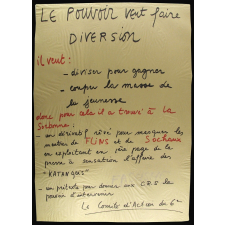 LE POUVOIR veut faire
DIVERSION
il veut :
- diviser pour gagner
- couper la masse de
la jeunesse
donc pour cela il a trouvé à La
Sorbonne :
- un dérivatif rêvé pour masquer les
meurtres de FLINS et de Sochaux
en exploitant en 1ère page de la
presse à sensation l'affaire des
"KATANGAIS"
- un prétexte pour donner aux C.R.S le
pouvoir d'intervenir
Le Comité d'Action du 6e